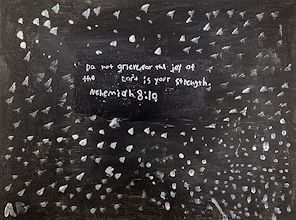 Do not grieve, for the joy of
the Lord is your strength.
Nehemiah 8:10